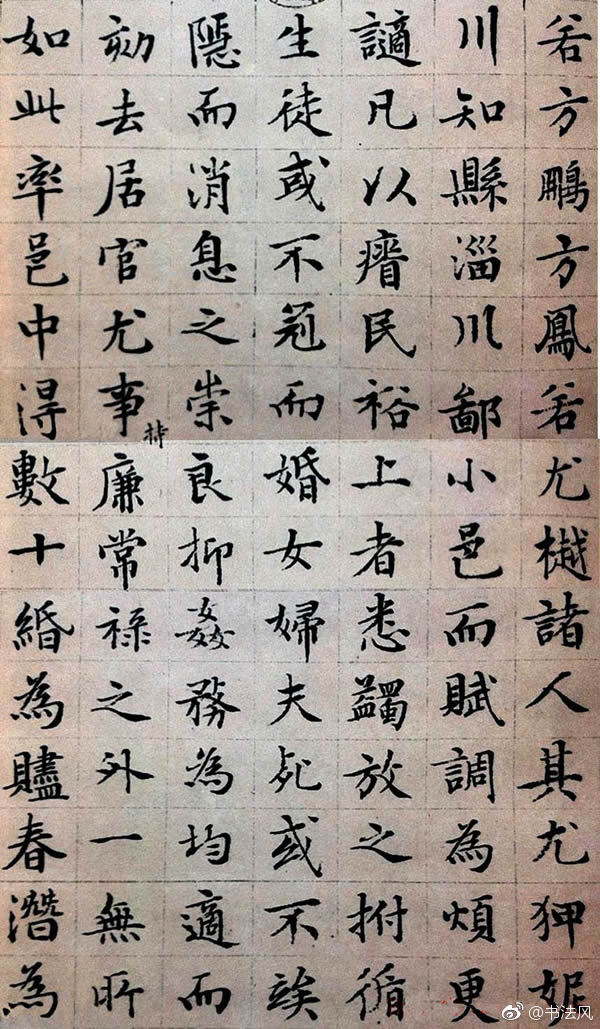 若方鵬方鳳若尤樾諸人其尤狎妮
川知縣淄川鄙小邑而賦調為煩更
謫凡以瘠民裕上者悉蠲放之拊循
生徒或不冠而婚女婦夫死或不竢
隱而消息之崇良抑姦務為均適而
劾去居官尤事持廉常祿之外一無所
如此率邑中得數十緡為贐春潛為
@书法风